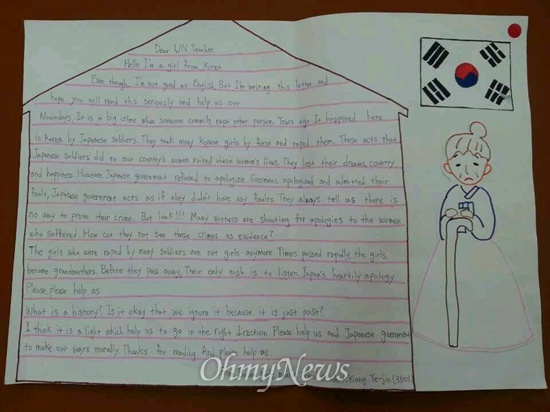 Dear UN Teacher
Hello I'm a girl from Korea
Even though I'm not good at English But I'm writing this letter and
hope you will read this seriously and help us out
Nowadays, It is a big crime when someone commits rape other person. Years ago It happened here
in Korea by Japanese Soldiers. They took many Korean girls by force and raped them. These acts that
Japanese soldiers did to our country's women ruined these women's lives. They lost their dreams, country
and happiness. However, Japanese government refused to apologize. Germans apologized and admitted their
faults, Japanese government acts as if they didn't have any faults They always tell us there is
no way to prove their crime. But look!!! Many witness are shouting for apologies to the women
who suffered. How can they not see these crimes as evidence?
The girls who were raped by many soldiers are not girls anymore Times passed rapidly, the girls
became grandmothers. Before they pass away, Their only wish is to listen Japan's heartily apology
Please, please help us
What is a history? Is it okay that we ignore it because it is just past?
I think it is a light which help us to go in the right direction. Please help us and Japanese government
to make our ways morally. Thanks for reading And please help us.
Kang Ye-jin
OhmyNews